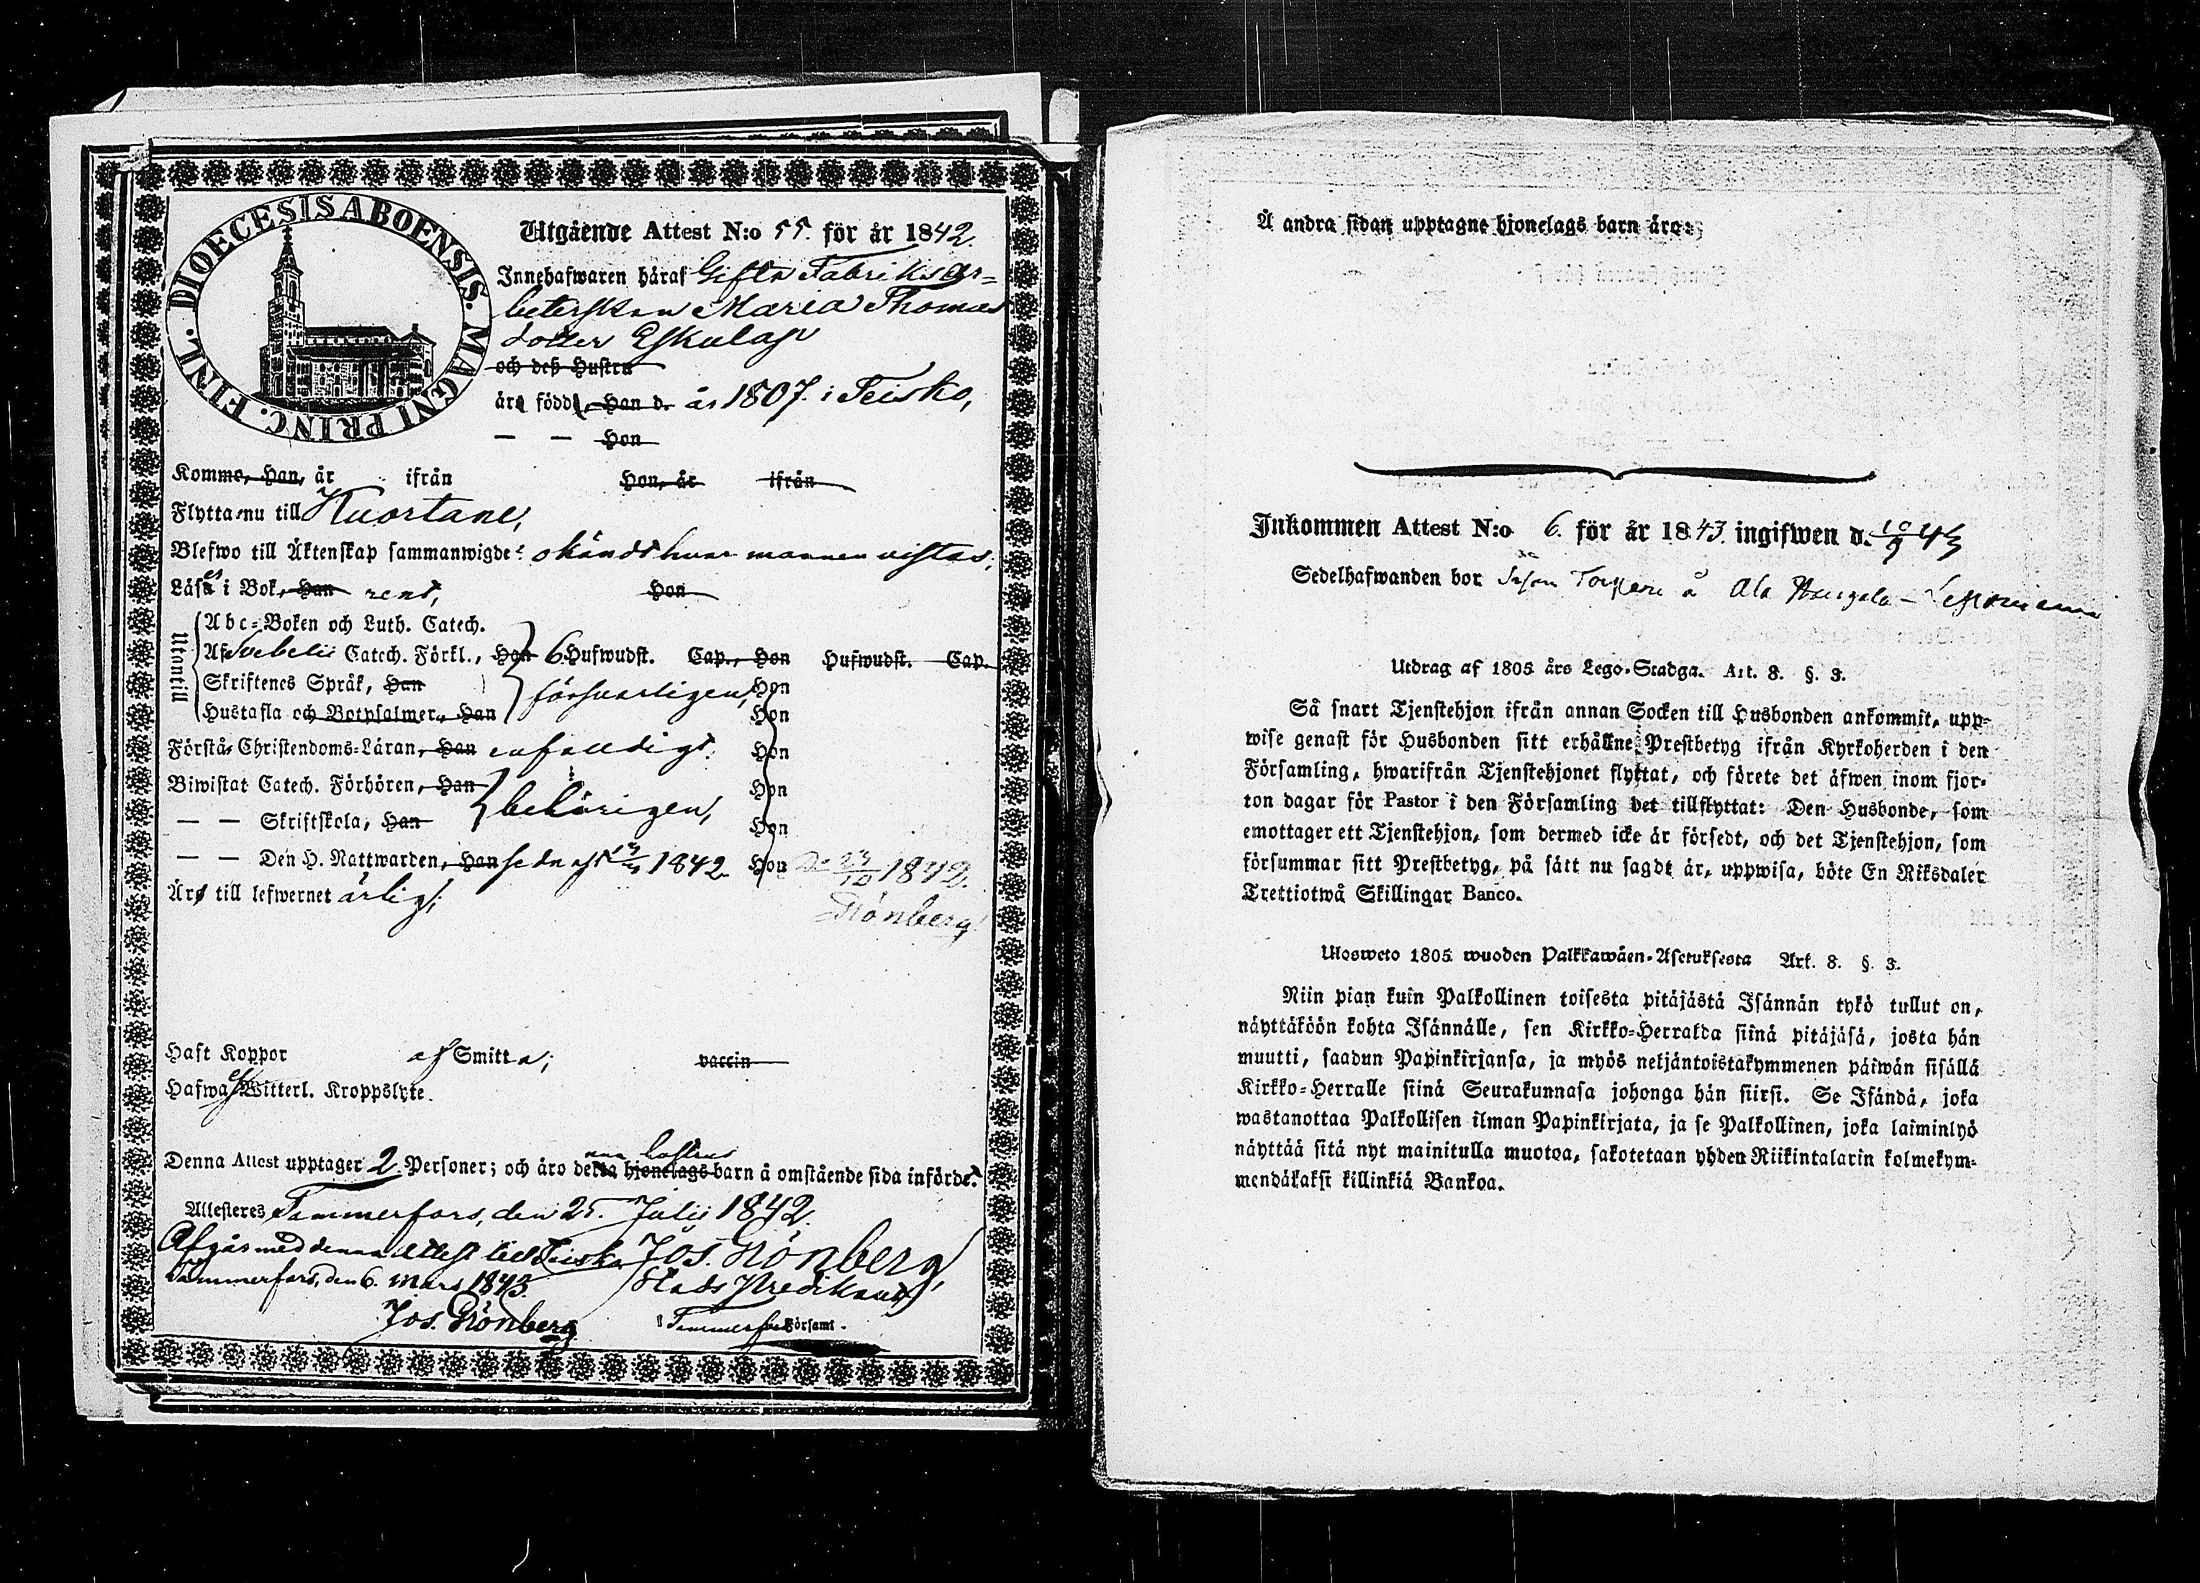 DIOECESIS ABOENSIS. MAGNI PRINC. FINL.
Utgående Attest N:o 55. för år 1842.
Innehafwaren häraf Gifta Fabriksar-
beterskan Maria Thomas
dotter Eskulap
och deß Hustru
äro född, Han d. år 1807. i Teisko,
— — Hon
Komme, Han, år ifrån Hon, år ifrån
Flytta nu till Kuortane,
Blefwo till Äktenskap sammanwigde: okändt hvar mannen vistas;
Läser i Bok, Han rent, Hon
Utantill
Abc-Boken och Luth. Catech.
Af Svebelii Catech. Förkl., Han 6 Hufwudst. Cap., Hon Hufwudst. Cap.
Skriftenes Språk, Han försvarligen, Hon
Hustafla och Botpsalmer, Han Hon
Förstå Christendoms-Läran, Han enfaldigt. Hon
Biwistat Catech. Förhören, Han behörigen, Hon
— — Skriftskola, Han Hon
— — Den H. Nattwarden, Han sednast 1842. Hon 23/10 1842.
Äro till lefwernet ärligt; Grönberg
Haft Koppor af Smitta; vaccin
Hafwa ej Witterl. Kroppslyte.
Denna Attest upptager 2 Personer; och äro detta hjonelags barn å omstående sida införde.
Attesteres Tammerfors, den 25. Julii 1842.
Afgår med denna attest till Teisko Jos. Grönberg
Tammerfors, den 6. Mars 1843. Stads Predikant
Jos. Grönberg i Tammerfors Församl.
Å andra sidan upptagne hjonelags barn äro:
Inkommen Attest N:o 6. för år 1843. ingifwen d.
Sedelhafwanden bor å Ala
Utdrag af 1805 års Lego-Stadga. Art. 8. §. 3.
Så snart Tjenstehjon ifrån annan Socken till Husbonden ankommit, upp-
wise genast för Husbonden sitt erhållne Prestbetyg ifrån Kyrkoherden i den
Församling, hwarifrån Tjenstehjonet flyttat, och förete det äfwen inom fjor-
ton dagar för Pastor i den Församling det tillflyttat: Den Husbonde, som
emottager ett Tjenstehjon, som dermed icke är försedt, och det Tjenstehjon, som
försummar sitt Prestbetyg, på sätt nu sagdt är, uppwisa, böte En Riksdaler
Trettiotwå Skillingar Banco.
Ulosweto 1805 wuoden Palkkawäen-Asetuksesta Art. 8. §. 3.
Niin pian kuin Palkollinen toisesta pitäjästä Isännän tykö tullut on,
näyttäköön kohta Isännälle, sen Kirkko-Herralda siinä pitäjäsä, josta hän
muutti, saadun Papinkirjansa, ja myös neljäntoistakymmenen päiwän sisällä
Kirkko-Herralle siinä Seurakunnasa johonga hän siirsi. Se Isändä, joka
wastanottaa Palkollisen ilman Papinkirjata, ja se Palkollinen, joka laiminlyö
näyttää sitä nyt mainitulla muotoa, sakotetaan yhden Riikintalarin kolmekym-
mendäkaksi killinkiä Bankoa.